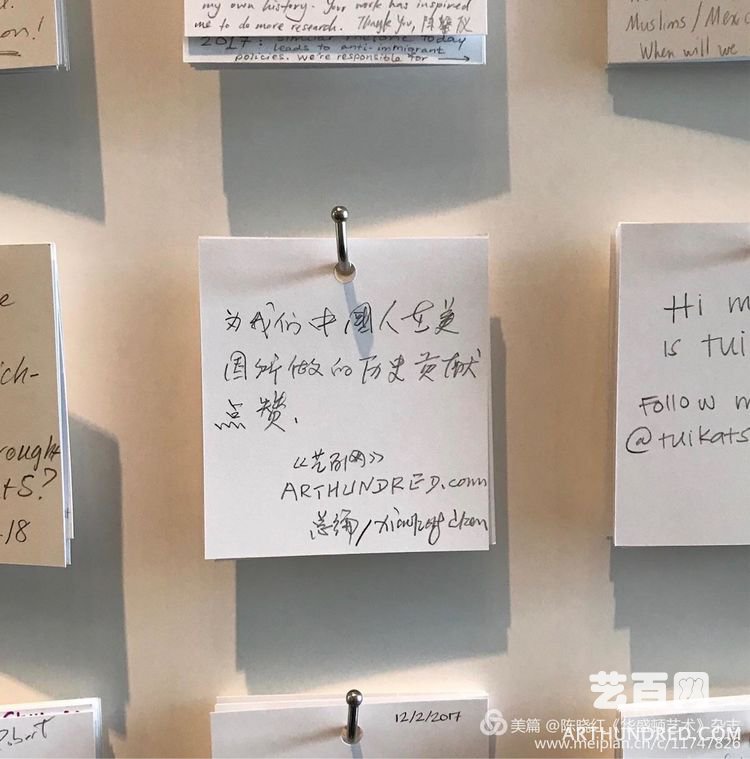 my own history. Your work has inspired
me to do more research. Thank You,
2017:
leads to anti-immigrant
policies. we're responsible for →
on!
Muslims/Mexic
When will we
为我们中國人在美
国所做的历史贡献
点赞.
《艺百网》
ARTHUNDRED.com
总编/
e
ich-
rought
ts?
.18
Hi m
is tui
Follow m
@tuikats
12/2/2017
艺百网
美篇 @陈晓红《华盛顿艺术》杂志
ARTHUNDRED.COM
www.meipian.cn/c/11747826